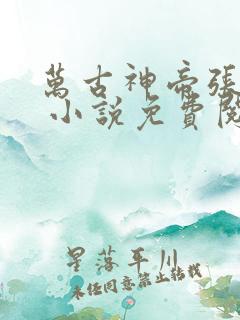 萬古神帝張
小說免費閱
星落平川
未经同意禁止转载